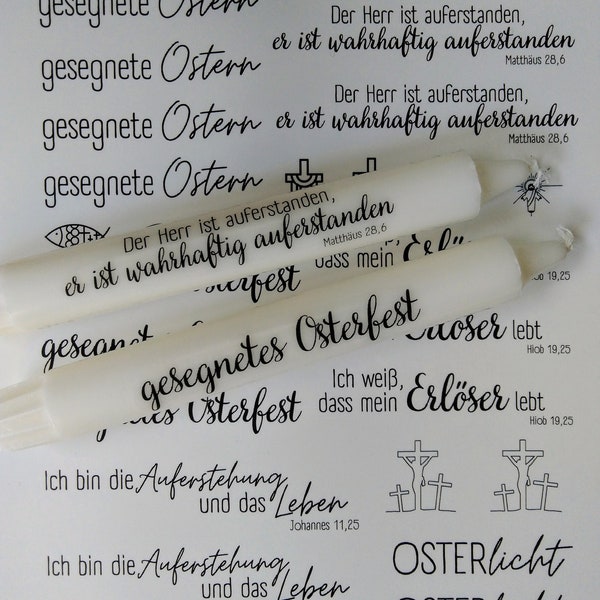 gesegnete Ostern
Der Herr ist auferstanden,
er ist wahrhaftig auferstanden
Matthäus 28,6
gesegnete Ostern
Der Herr ist auferstanden,
er ist wahrhaftig auferstanden
Matthäus 28,6
gesegnete Ostern
gesegnete Ostern
Der Herr ist auferstanden,
er ist wahrhaftig auferstanden
Matthäus 28,6
dass mein
19,25
lebt
Hiob 19,25
gesegnetes Osterfest
Ich weiß,
dass mein Erlöser lebt
Hiob 19,25
Osterfest
Ich bin die Auferstehung
und das Leben
Johannes 11,25
Ich bin die Auferstehung
und das Leben
OSTERlicht